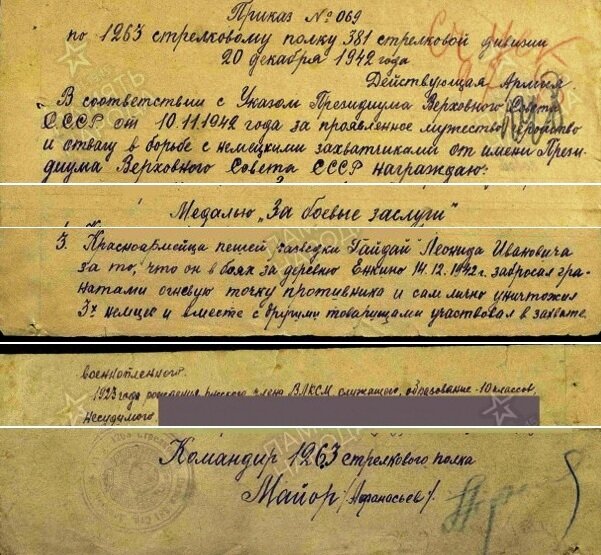 Приказ № 069
по 1263 стрелковому полку 381 стрелковой дивизии
20 декабря 1942 года
Действующая Армия
В соответствии с Указом Президиума Верховного Совета
СССР от 10.11.1942 года за проявленное мужество, геройство
и отвагу в борьбе с немецкими захватчиками от имени Прези-
диума Верховного Совета СССР награждаю:
Медалью „За боевые заслуги"
3. Красноармейца пешей разведки Гайдай Леонида Ивановича
за то, что он в боях за деревню Енкино 14.12.1942 г. забросал гра-
натами огневую точку противника и сам лично уничтожил
3х немцев и вместе с другими товарищами участвовал в захвате
военнопленного.
1923 года рождения, русского, члена ВЛКСМ, служащого, образование - 10 классов,
несудимого.
Командир 1263 стрелкового полка
Майор /Афанасьев/.